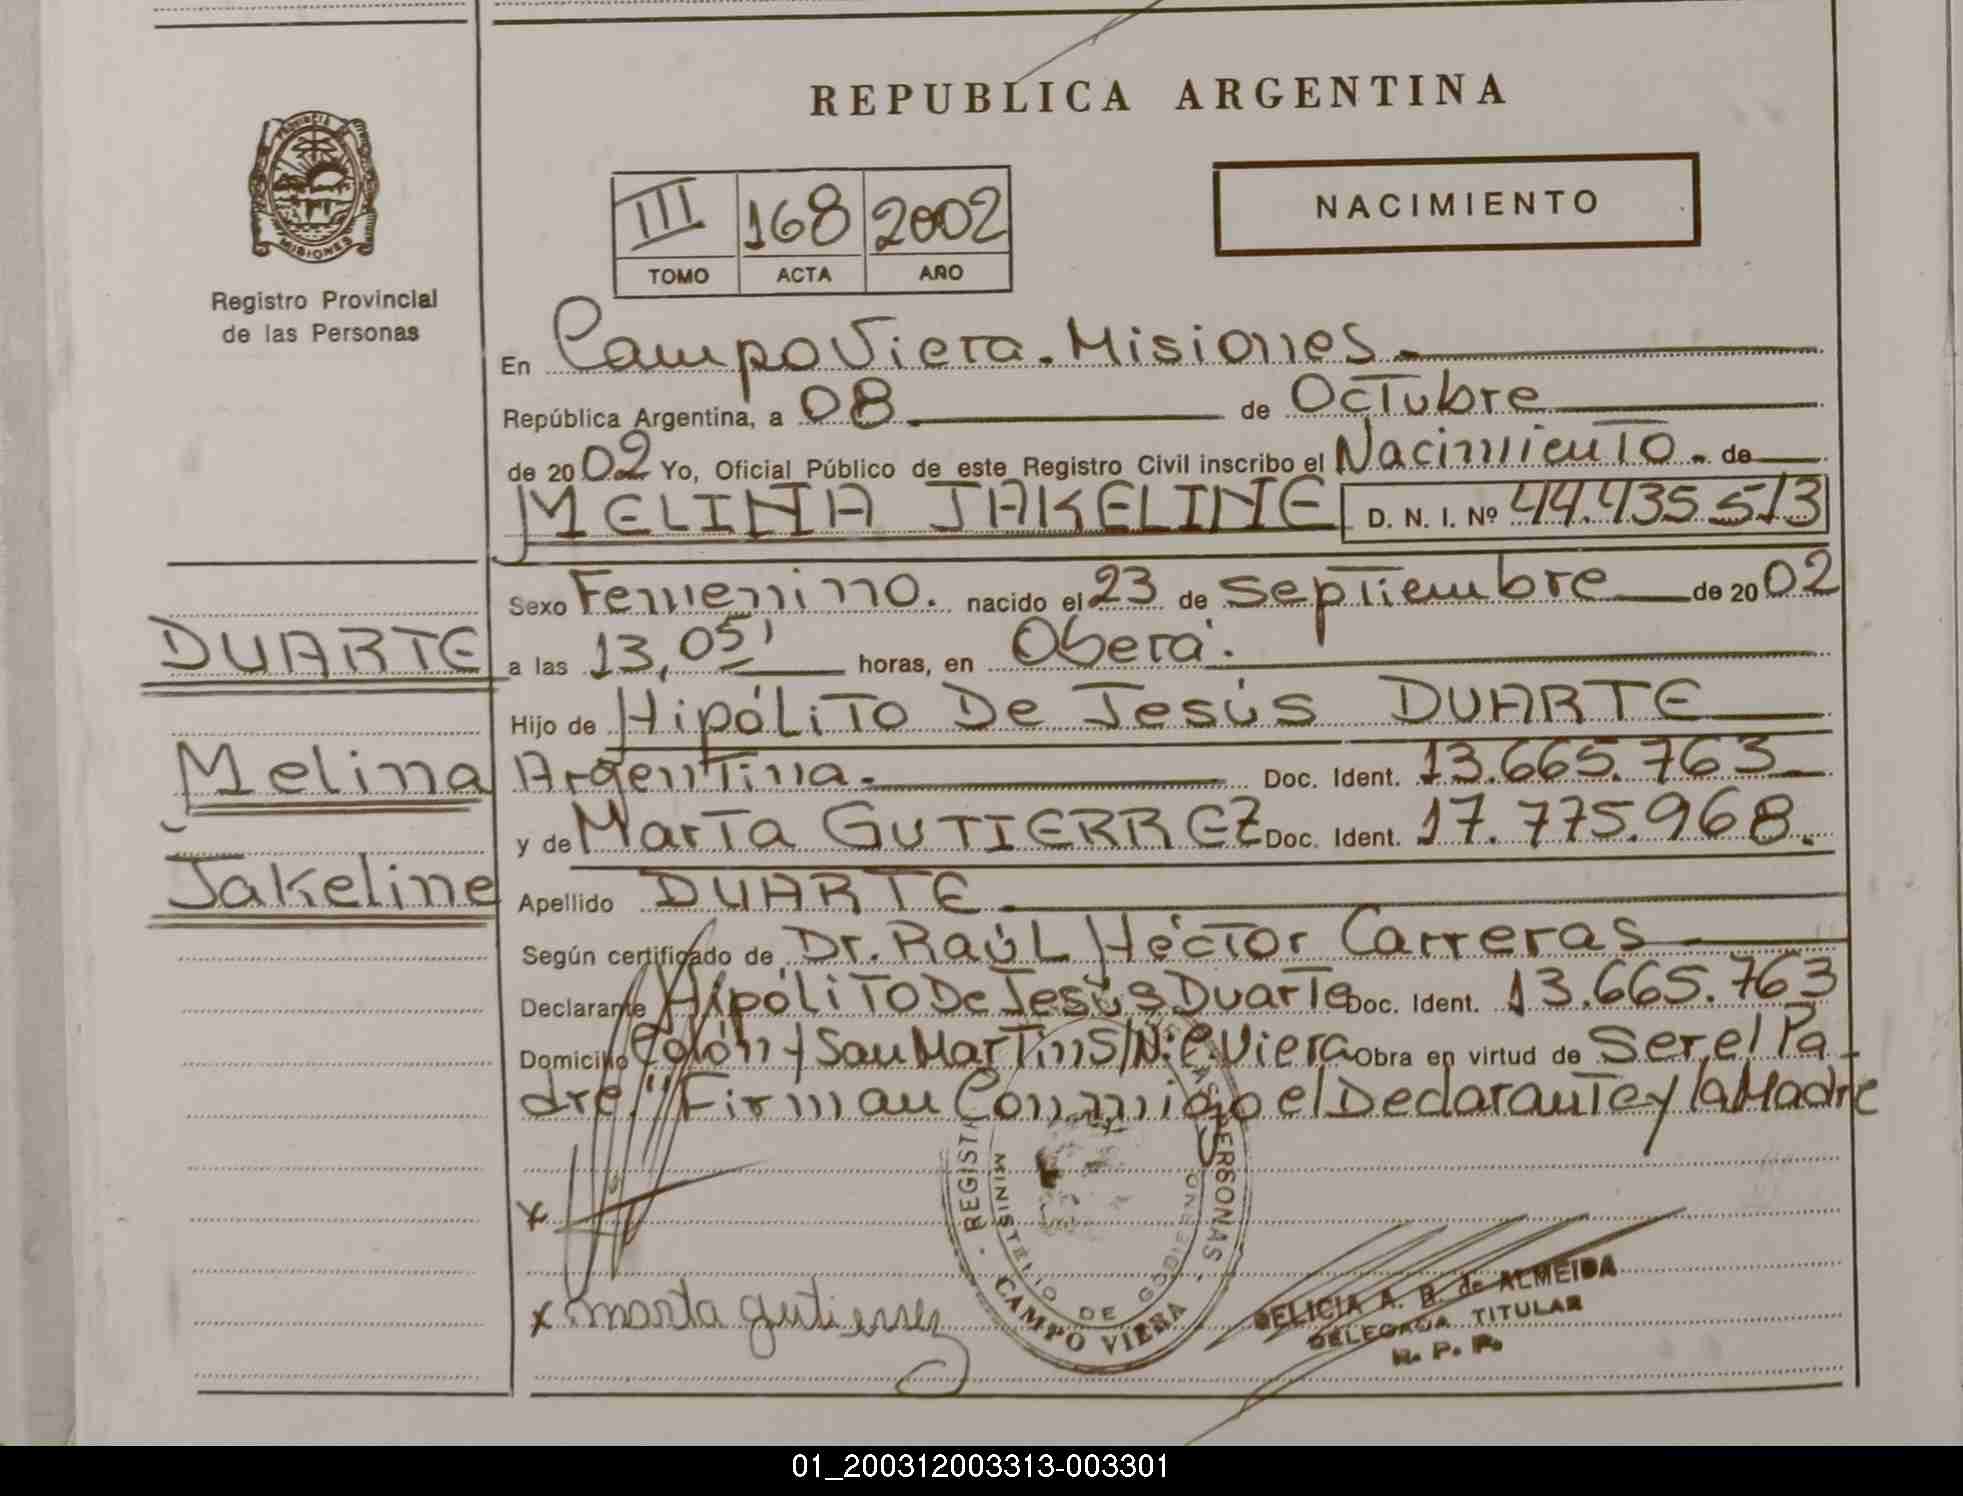 REPUBLICA ARGENTINA
PROVINCIA DE
MISIONES
Registro Provincial
de las Personas
III 168 2002
TOMO ACTA AÑO
NACIMIENTO
En Campo Viera. Misiones.
República Argentina, a 08 de Octubre
de 2002 Yo, Oficial Público de este Registro Civil inscribo el Nacimiento. de
MELINA JAKELINE D. N. I. Nº 44.435.513
Sexo Femenino. nacido el 23 de Septiembre de 2002
DUARTE
a las 13,05' horas, en Oberá.
Hijo de Hipólito De Jesús DUARTE
Melina
Argentina. Doc. Ident. 13.665.763
y de Marta GUTIERREZ Doc. Ident. 17.775.968.
Jakeline
Apellido DUARTE
Según certificado de Dr. Raúl Héctor Carreras
Declarante Hipólito De Jesús Duarte Doc. Ident. 13.665.763
Domicilio Colón y San Martin S/N: C. Viera Obra en virtud de Ser el Pa-
dre," Firman Conmigo el Declarante y la Madre
x
x marta gutierrez
REGISTR AS PERSONAS
MINISTERIO DE GOBIERNO
CAMPO VIERA
DELICIA A. B. de ALMEIDA
DELEGADA TITULAR
R. P. P.
01_200312003313-003301